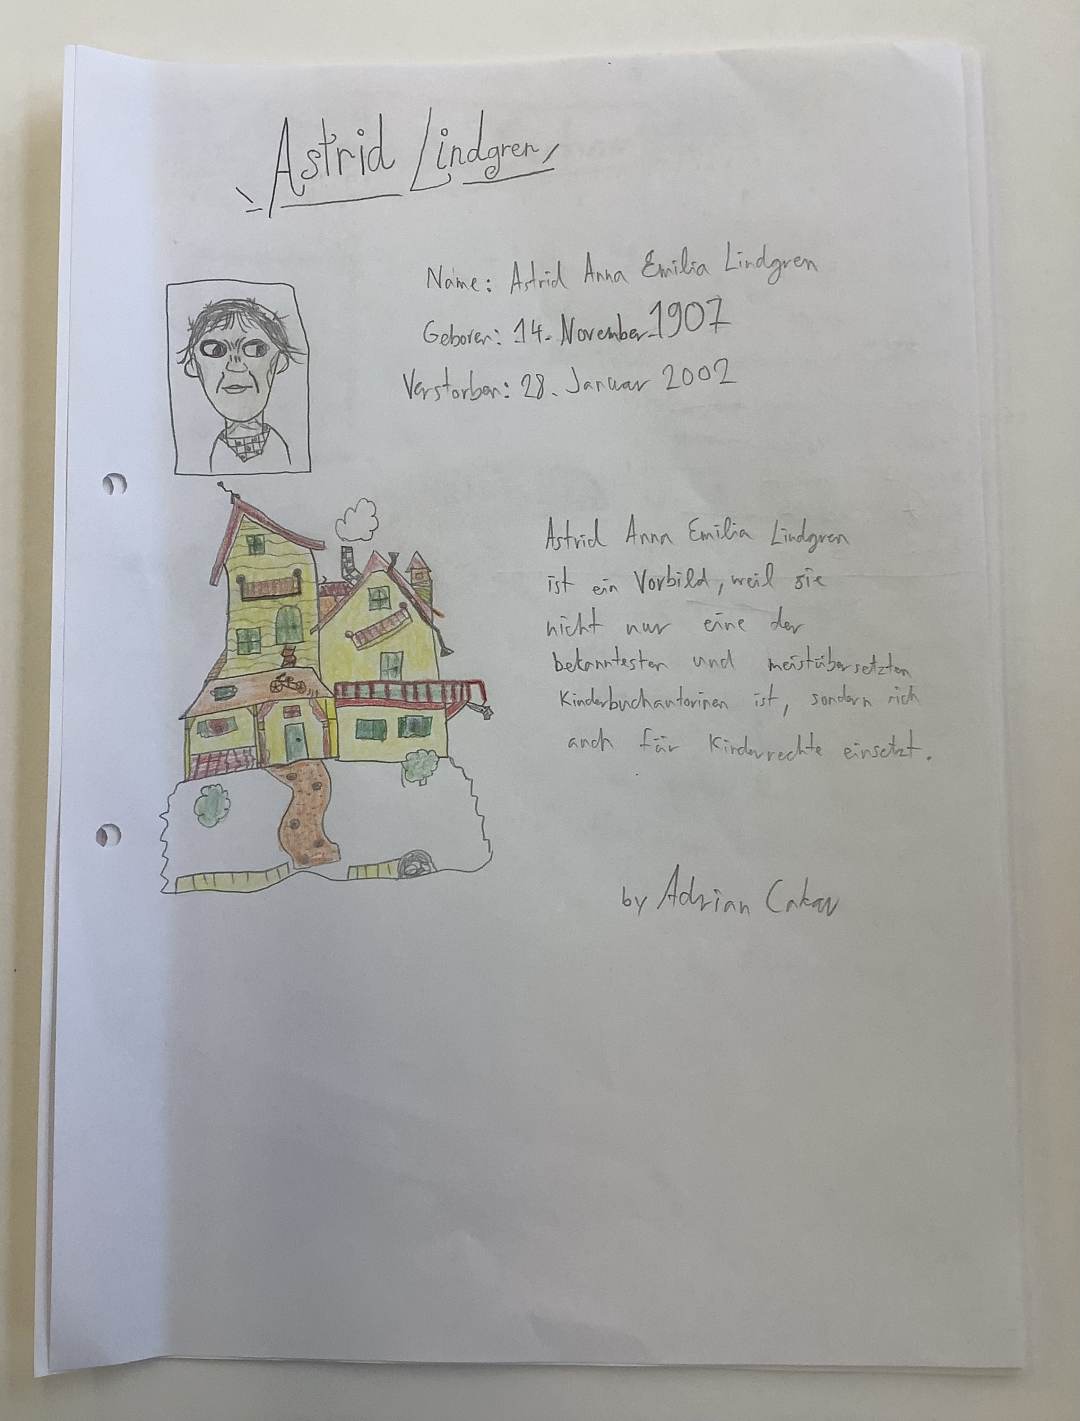 Astrid Lindgren
Name: Astrid Anna Emilia Lindgren
Geboren: 14. November 1907
Verstorben: 28. Januar 2002
Astrid Anna Emilia Lindgren
ist ein Vorbild, weil sie
nicht nur eine der
bekanntesten und meistübersetzten
Kinderbuchautorinen ist, sondern sich
auch für Kinderrechte einsetzt.
by Adrian Cakar